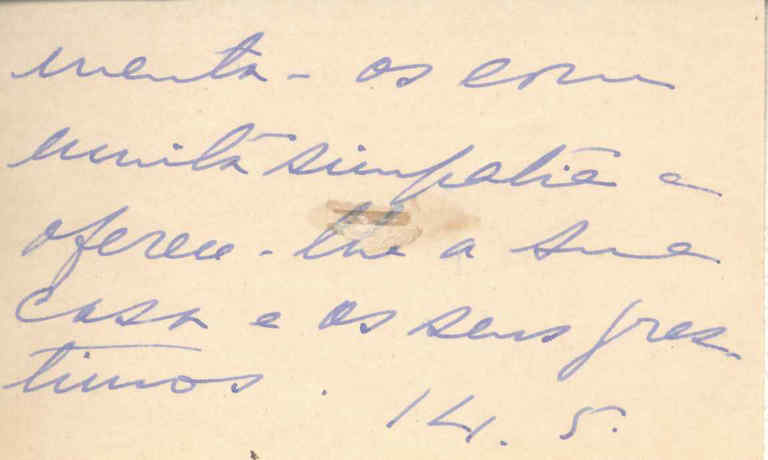 menta-os com
muita simpatia e
oferece-lhe a sua
casa e os seus pres-
timos.
14.5.